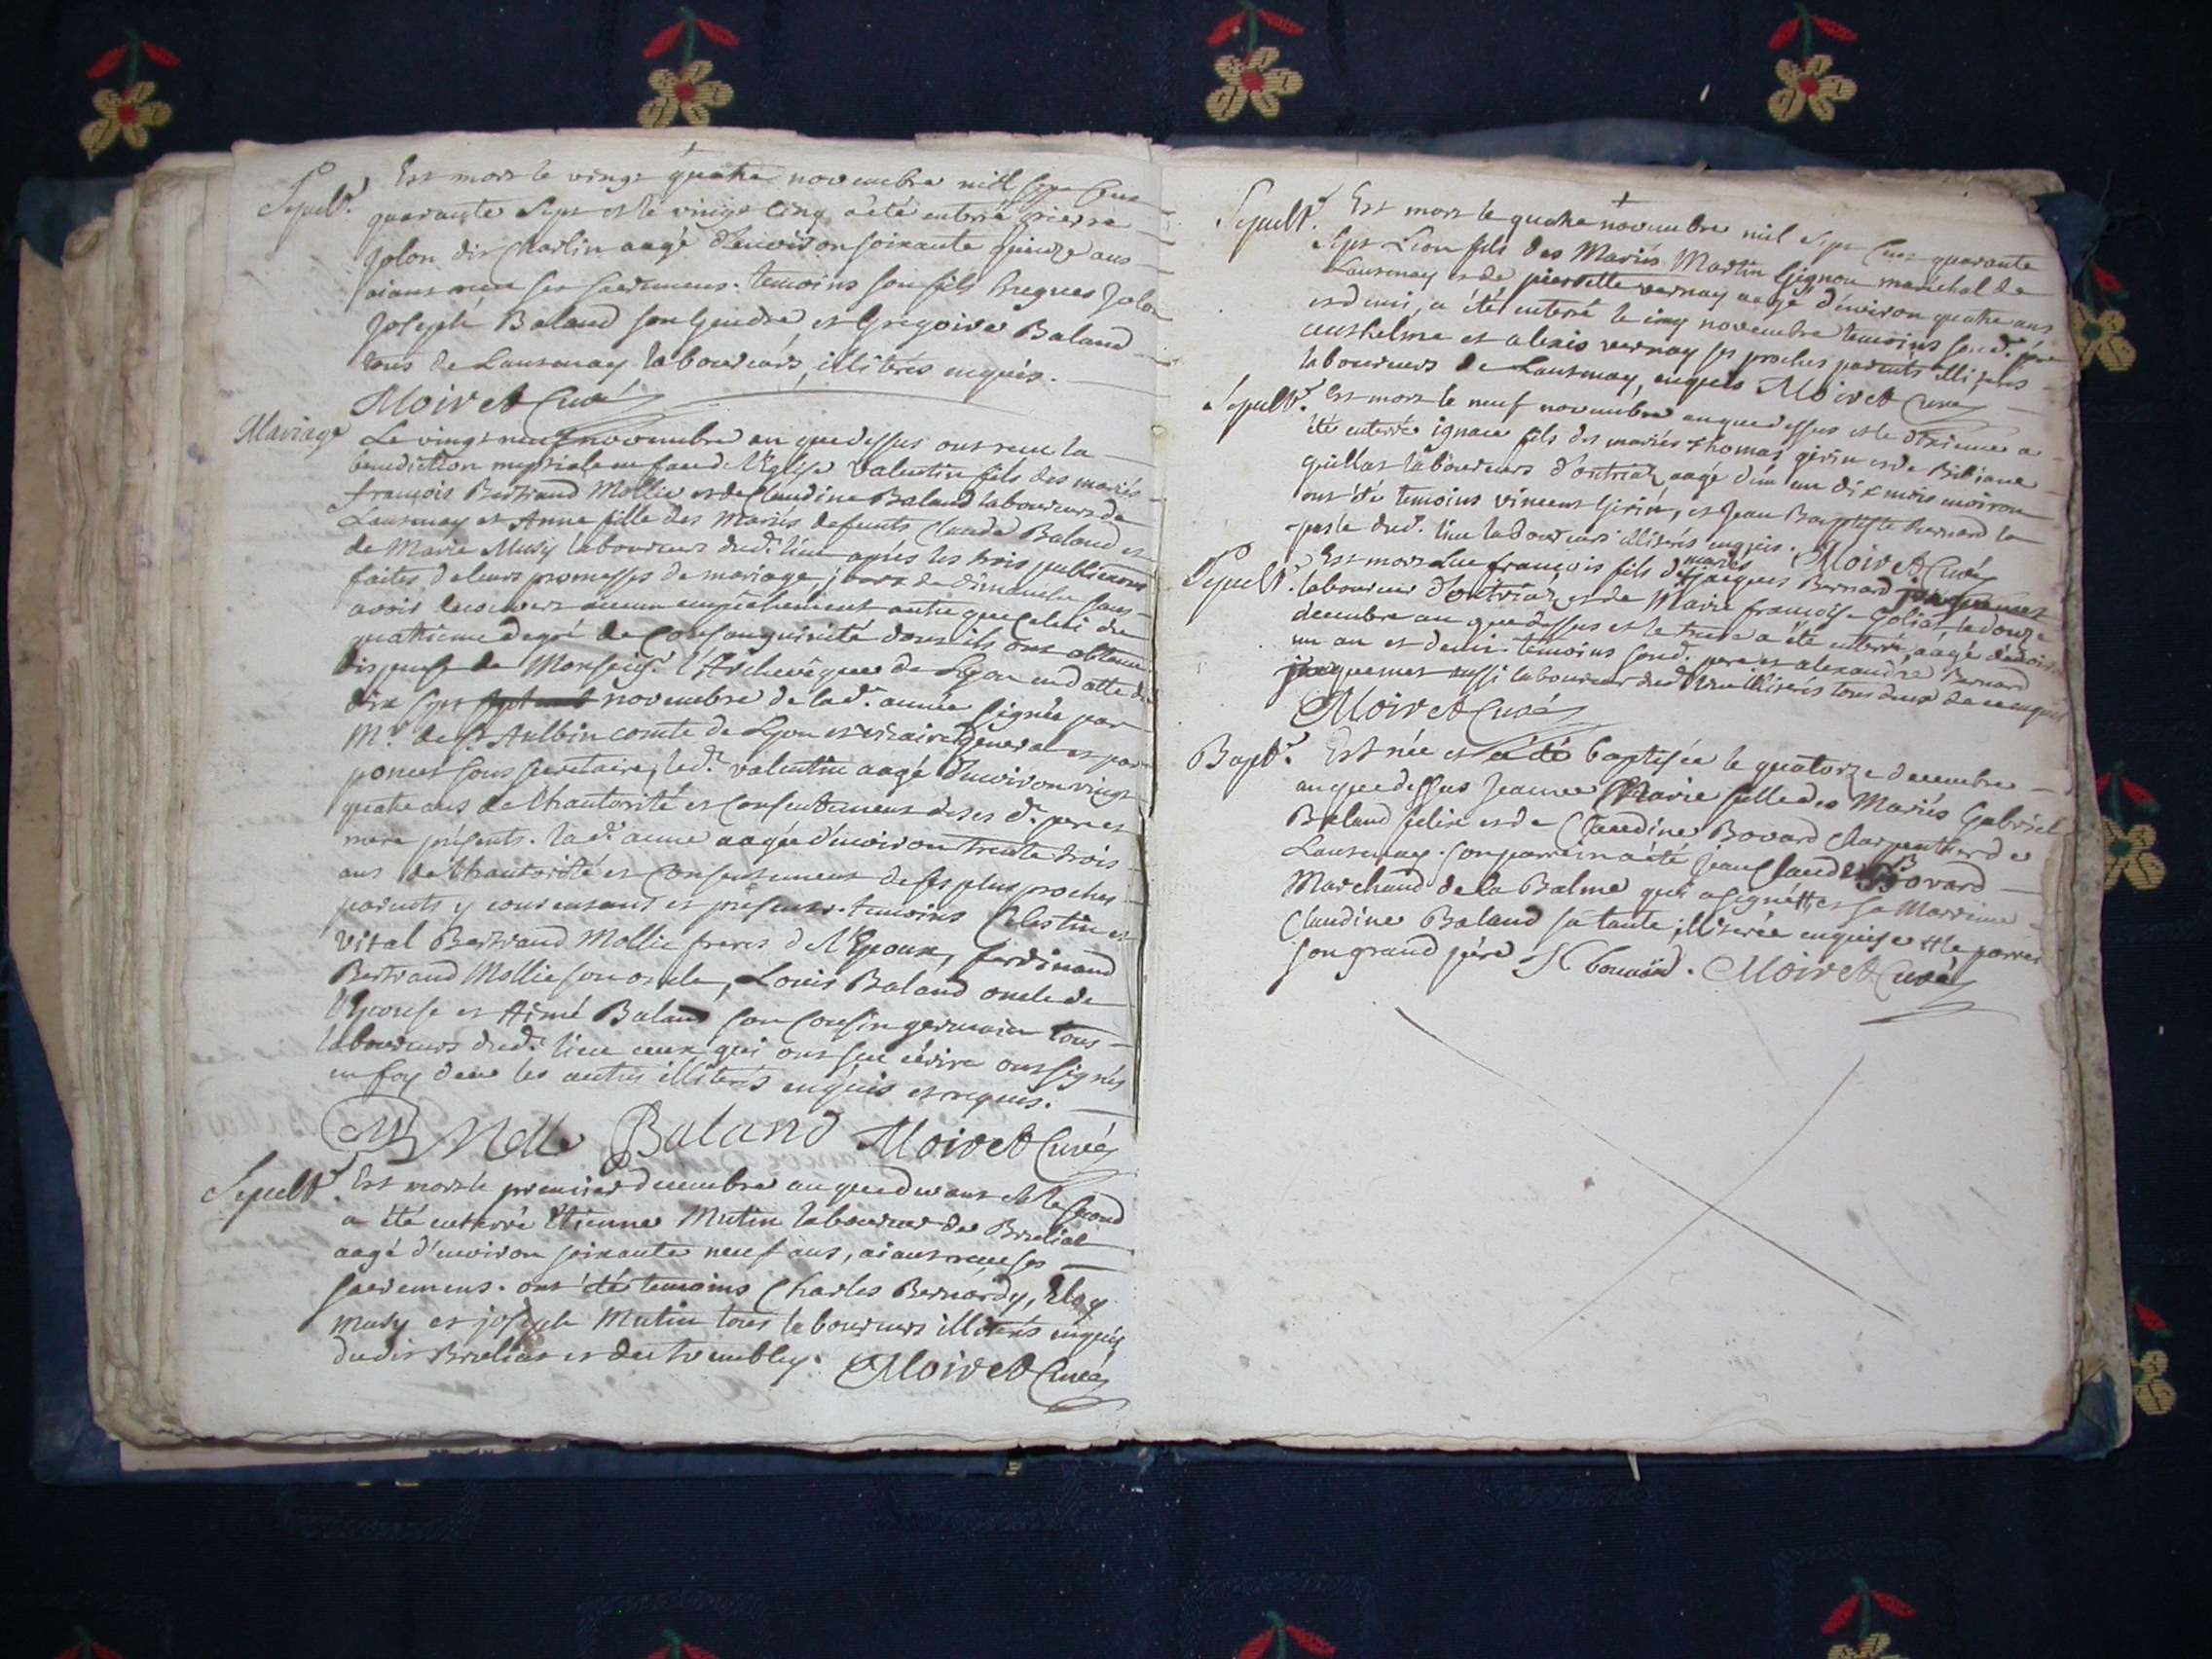 Sepult.
Est mort le vingt quatre novembre mil sept cent
quarante sept et le vingt cinq a été enterré pierre
Jolon dit Charlin aagé d'environ soixante quinze ans
aiant receu ses sacremens. temoins son fils Jolon
Joseph Baland son gendre et Gregoire Baland
tous de Lantenay laboureurs, illiterés enquis.
Moiret Curé
Mariage
Le vingt neuf novembre an que dessus ont receu la
benediction nuptiale en face de l'Eglise Valentin fils des mariés
francois Bertrand Mollie et de Claudine Baland laboureurs de
Lantenay et Anne fille des Mariés defunts Claude Baland et
de Marie Musy laboureurs dud. lieu apres les trois publications
faites de leurs promesses de mariage, jours de dimanche sans
avoir decouvert aucun empêchement autre que celui du
quatrieme degré de consanguinité dont ils ont obtenu
dispense de Monseigr. l'Archevêque de Lyon en datte du
dix sept novembre de lad. année signée par
Mr. de St. Aulbin comte de Lyon et vicaire general et par
poncet sous secretaire, led. valentin aagé d'environ vingt
quatre ans de l'hautorité et consentement de ses d. pere et
mere présents. lad. anne aagée d'environ trente trois
ans de l'hautorité et consentement de ses plus proches
parents y consentans et présents. temoins Celestin et
Vital Bertrand Mollie freres de l'Epoux, ferdinand
Bertrand Mollie son oncle, Louis Baland oncle de
l'Epouse et Aimé Baland son cousin germain tous
laboureurs dud. lieu ceux qui ont sçu écrire ont signés
en foy de ce les autres illiterés enquis et requis.
Molle Baland Moiret Curé
Sepult.
Est mort le premier decembre an que devant et le second
a été enterré Etienne Mutin laboureur de Brelial
aagé d'environ soixante neuf ans, aiant receu ses
sacremens. ont été temoins Charles Bernardy, Eloy
Musy et joseph Mutin tous laboureurs illiterés enquis
dudit et du trembley. Moiret Curé
Sepult.
Est mort le quatre novembre mil sept cent quarante
sept Leon fils des Mariés Martin Gignou marêchal de
Lantenay et de pierrette vernay aagé d'environ quatre ans
et demi, a été enterré le cinq novembre temoins sond. père
anthelme et alexis vernay ses proches parents illiterés
laboureurs de Lantenay, enquis Moiret Curé
Sepult.
Est mort le neuf novembre an que dessus et le dixieme a
été enterré ignace fils des mariés thomas girin et de Bibiane
quillot laboureurs d'outriaz, aagé d'un an dix mois environ
ont été temoins vincent Girin, et Jean Baptiste Bernard la
peste dud. lieu laboureurs illiterés enquis. Moiret Curé
Sepult.
Est mort Luc francois fils des mariés jacques Bernard
laboureur d'outriaz, et de Marie francoise Goliat le douze
decembre an que dessus et le treize a été enterré, aagé d'environ
un an et demi. temoins sond. pere et alexandre Bernard
jacquemet aussi laboureur dud. lieu illiterés tous deux de ce enquis
Moiret Curé
Bapt.
Est née et a été baptisée le quatorze decembre
an que dessus Jeanne Marie fille des Mariés Gabriel
Baland felix et de Claudine Bovard charpentier de
Lantenay. son parrein a été jean Claude Bovard
Marchand de la Balme qui a signé et sa Marreine
Claudine Baland sa tante illiterée enquise le parrei
son grand père Moiret Curé